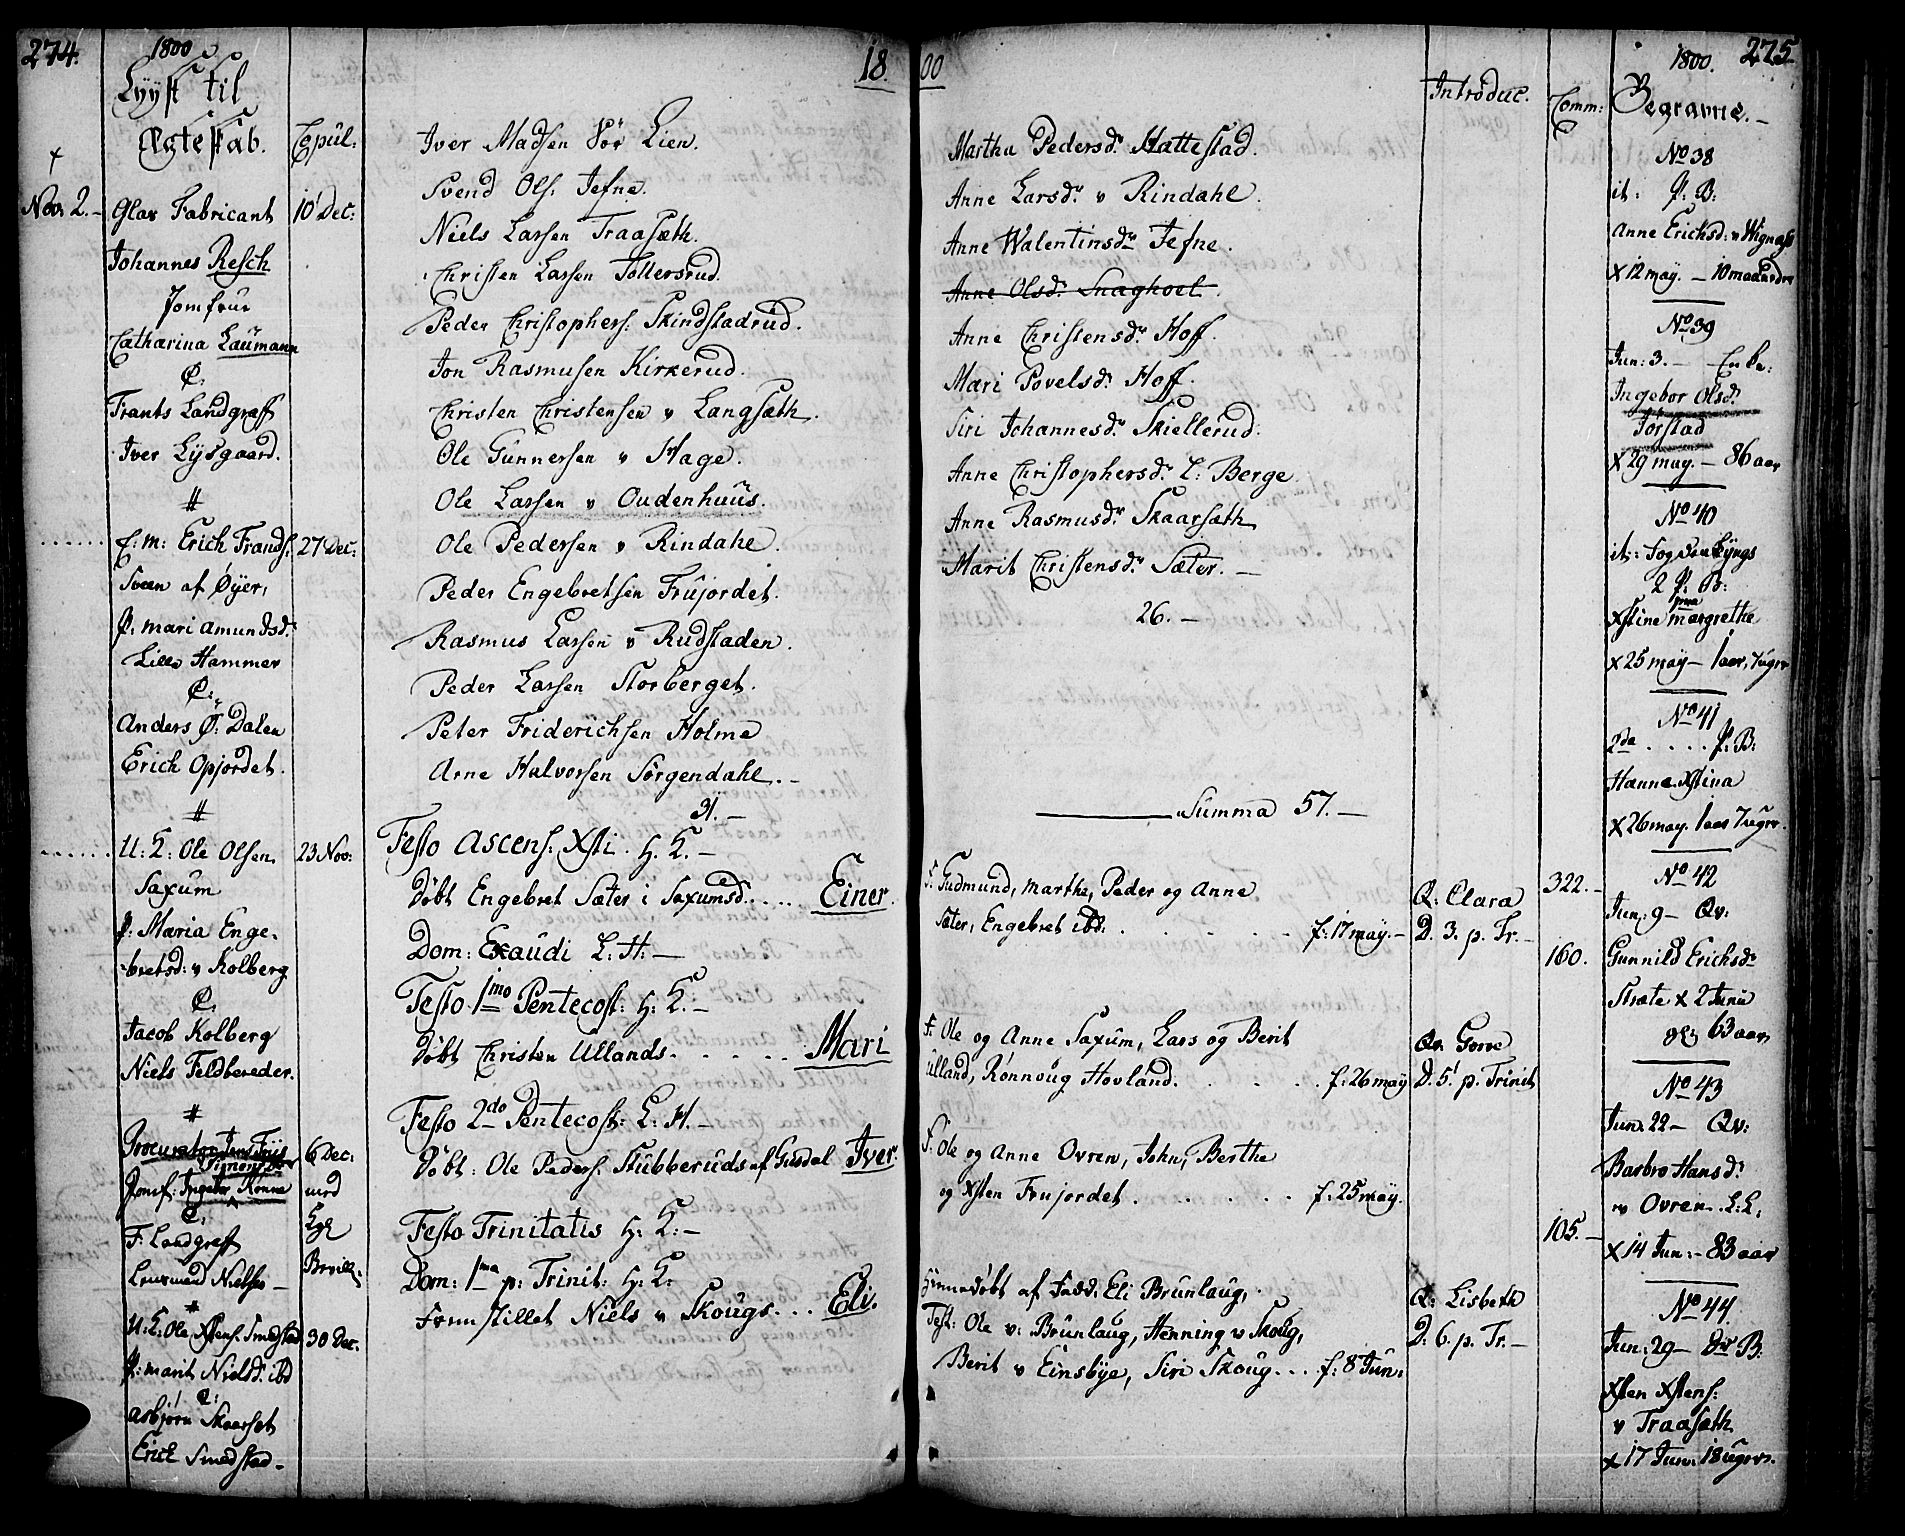 274.
1800
Lÿst til
Ægteskab.
Copul:
18
Nov: 2.-
Glas Fabricant
10 Dec:
Johannes Resch
Jomfrue
Catharina Laumann
C.
Frants Landgraff
Iver Lysgaard.
#
E: m: Erich Frands:
27 Dec:
Sveen af Öyer,
P: mari amundsd:
Lille Hammer
C:
Anders Ø: Dalen
Erich Opjordet.
#
U: K: Ole Olsen.
23 Nov:
Saxum
P: Maria Enge-
bretsd: v Kolberg
C.
Jacob Kolberg
Niels Feldbereder.
#
Procurator Jens Friis
6 Dec:
Jomf: Ingebor Rønne
med
C:
Kgl
F: Landgreff
Bevill:
Lensmand Nielsen
#
U: K: Ole Xstens: Smedstad
30 Dec:
P: marit Nielsd: ibd
C:
asbjørn Skaarset
Erich Smedstad-
Iver Madsen Lien.
Svend Ols: Jefne.
Niels Larsen Traasæth.
Christen Larsen Tollersrud.
Peder Christophers: Skindstadrud.
Jon Rasmusen Kirkerud.
Christen Christensen v Langsæth.
Ole Gunnersen v Hage.
Ole Larsen v Oudenhuus.
Ole Pedersen v Rindahl.
Peder Engebretsen Frujordet.
Rasmus Larsen v Rudstaden.
Peder Larsen Storberget.
Peter Friderichsen Holme
Arne Halvorsen Sörgendahl.-
31.-
Festo Ascens: Xsti. H: K.-
Döbt Engebret Sæter i Saxumsd..... Einer.
Dom: Exaudi L: H:-
Festo 1mo Pentecost: H: K.-
Döbt Christen Ullands..... Mari
Festo 2do Pentecost: L: H.-
Döbt: Ole Peders: Stubberuds af Gusdal Iver.
Festo Trinitatis H: K:-
Dom: 1ma p: Trinit: H: K:
Fremstillet Niels v Skougs... Eli.
00
Introduc.
Comm:
1800.
275
Begravne.-
Martha Pedersd: Hattestad.
Anne Larsd: v Rindahl.
Anne Walentinsd: Jefne.
Anne Olsd: Snaghoel.
Anne Christensd: Hoff.
Mari Povelsd: Hoff.
Siri Johannesd: Skiellerud.
Anne Christophersd: L: Berge
Anne Rasmusd: Skaarsæth
Marit Christensd: Sæter.-
26.-
Summa 57.-
F: Gudmund, Marthe, Peder og Anne
Sæter, Engebret ibd:..... f: 17 may.-
Q: Clara
D. 3. p. Tr.-
322.-
160.
F: Ole og Anne Saxum, Lars og Berit
Ulland, Rönnoug Hovland..... f: 26 may
Qv: Gorre
D. 5. p. Trinit
F: Ole og Anne Ovren, John, Berthe
og Xsten Frujordet..... f: 25 may.
105.-
Hiemedöbt af Eli Brunlaug,
Test: Ole v: Brunlaug, Henning v Skoug,
Berit v Einsbye, Siri Skoug... f: 8 Jun:
Q: Lisbeth
D: 6. p. Tr.-
No 38
it: P: B:
Anne Erichsd: v Wignæss
X 12 may.- 10 maaneder
No 39
Jun: 3.- Enke:
Ingebor Olsd:
Jorstad
X 29 may.- 86 aar
No 40
it:
2 P: B:
Xstine margrethe
X 25 may- 1 aar, 7 uger
No 41
2de.... P: B:
Hanne Xstina
X 26 may. 1 aar 7 uger.
No 42
Jun: 9- Qv:
Gunnild Erichsd:
Stræte X 2 Junii
63 aar
No 43
Jun: 22- Qv:
Barbro Hansd:
v Ovren. L: L:
X 14 Jun:- 83 aar
No 44.
Jun: 29- B:
Xsten Xstens:
v Traasæth
X 17 Jun: 18 uger.